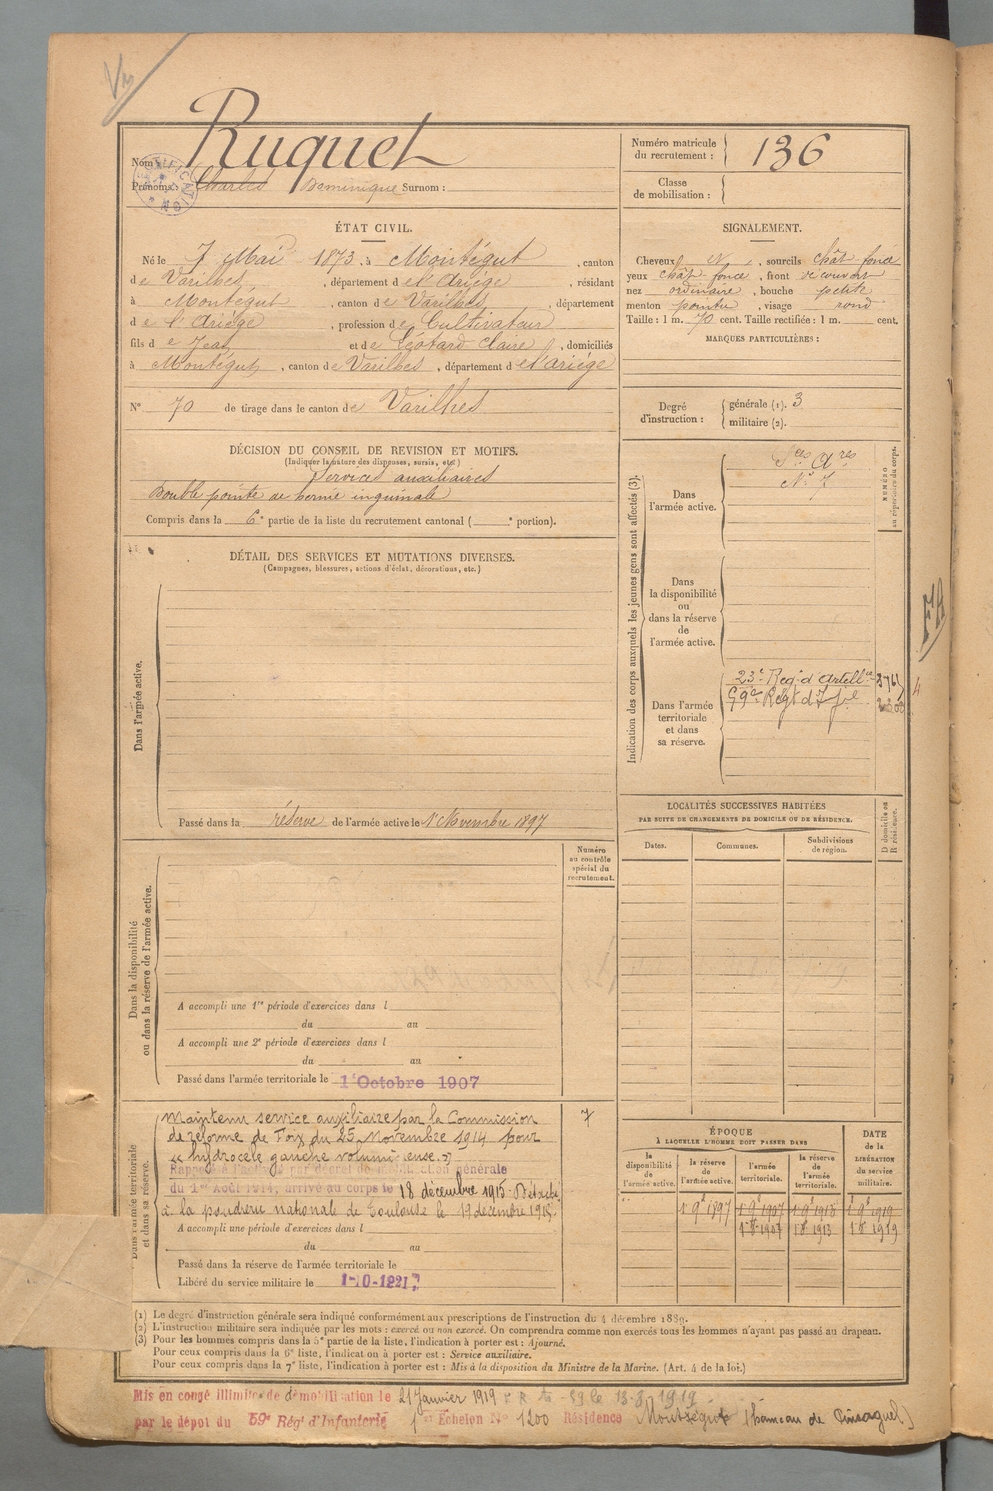 Ruquet
Nom :
Prénoms : Charles Dominique Surnom :
Numéro matricule
du recrutement : 136
Classe
de mobilisation :
ÉTAT CIVIL.
Né le 7 Mai 1873, à Montégut, canton
de Varilhes, département de l'Ariège, résidant
à Montégut, canton de Varilhes, département
de l'Ariège, profession de Cultivateur
fils de Jean et de Léotard Claire, domiciliés
à Montégut, canton de Varilhes, département de l'ariége
N° 70 de tirage dans le canton de Varilhes
SIGNALEMENT.
Cheveux et, sourcils chât foncé
yeux chât foncé, front découvert
nez ordinaire, bouche petite
menton pointu, visage rond
Taille : 1 m. 70 cent. Taille rectifiée : 1 m. cent.
MARQUES PARTICULIÈRES :
Degré
d'instruction :
générale (1). 3
militaire (2).
DÉCISION DU CONSEIL DE REVISION ET MOTIFS.
(Indiquer la nature des dispenses, sursis, etc.)
Services auxiliaires
Double pointe de hernie inguinale
Compris dans la 6e partie de la liste du recrutement cantonal ( e portion).
DÉTAIL DES SERVICES ET MUTATIONS DIVERSES.
(Campagnes, blessures, actions d'éclat, décorations, etc.)
Dans l'armée active.
Passé dans la réserve de l'armée active le 1r Novembre 1897
Indication des corps auxquels les jeunes gens sont affectés (3).
NUMÉRO
au répertoire du corps.
Dans
l'armée active.
Ses Ares
N° 7
Dans
la disponibilité
ou
dans la réserve
de
l'armée active.
Dans l'armée
territoriale
et dans
sa réserve.
23e Reg. d'Artellie
59e Regt d'Infie
FA
LOCALITÉS SUCCESSIVES HABITÉES
PAR SUITE DE CHANGEMENTS DE DOMICILE OU DE RÉSIDENCE.
Dates.
Communes.
Subdivisions
de région.
D domicile ou
R résidence.
Numéro
au contrôle
spécial du
recrutement.
Dans la disponibilité
ou dans la réserve de l'armée active.
A accompli une 1re période d'exercices dans l
du au
A accompli une 2e période d'exercices dans l
du au
Passé dans l'armée territoriale le 1r Octobre 1907
Dans l'armée territoriale
et dans sa réserve.
Maintenu service auxiliaire par la Commission
de réforme de Foix du 25 Novembre 1914 pour
« hydrocèle gauche volumineuse. »
Rappelé à l'activité par décret de mobilisation générale
du 1er Août 1914, arrivé au corps le 18 décembre 1915. Détaché
à la poudrerie nationale de Toulouse le 19 décembre 1915
A accompli une période d'exercices dans l
du au
Passé dans la réserve de l'armée territoriale le
Libéré du service militaire le 1-10-1921
7
ÉPOQUE
À LAQUELLE L'HOMME DOIT PASSER DANS
la
disponibilité
de
l'armée active.
la réserve
de
l'armée active.
l'armée
territoriale.
la réserve
de
l'armée
territoriale.
DATE
de la
LIBÉRATION
du service
militaire.
1r 9bre 1897
1r 9bre 1907
1r 9bre 1913
1r 9bre 1919
1r 8bre 1907
1r 8bre 1913
1r 8bre 1919
(1) Le degré d'instruction générale sera indiqué conformément aux prescriptions de l'instruction du 4 décembre 1889.
(2) L'instruction militaire sera indiquée par les mots : exercé ou non exercé. On comprendra comme non exercés tous les hommes n'ayant pas passé au drapeau.
(3) Pour les hommes compris dans la 5e partie de la liste, l'indication à porter est : Ajourné.
Pour ceux compris dans la 6e liste, l'indication à porter est : Service auxiliaire.
Pour ceux compris dans la 7e liste, l'indication à porter est : Mis à la disposition du Ministre de la Marine. (Art. 4 de la loi.)
Mis en congé illimité de démobilisation le 21 Janvier 1919
par le dépot du 59e Rég' d'Infanterie 1er Échelon N° 1200 Résidence (hameau de Pinsaguel)